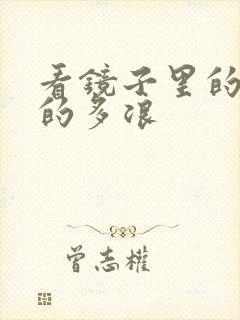 看镜子里的
的多滚
曾志權